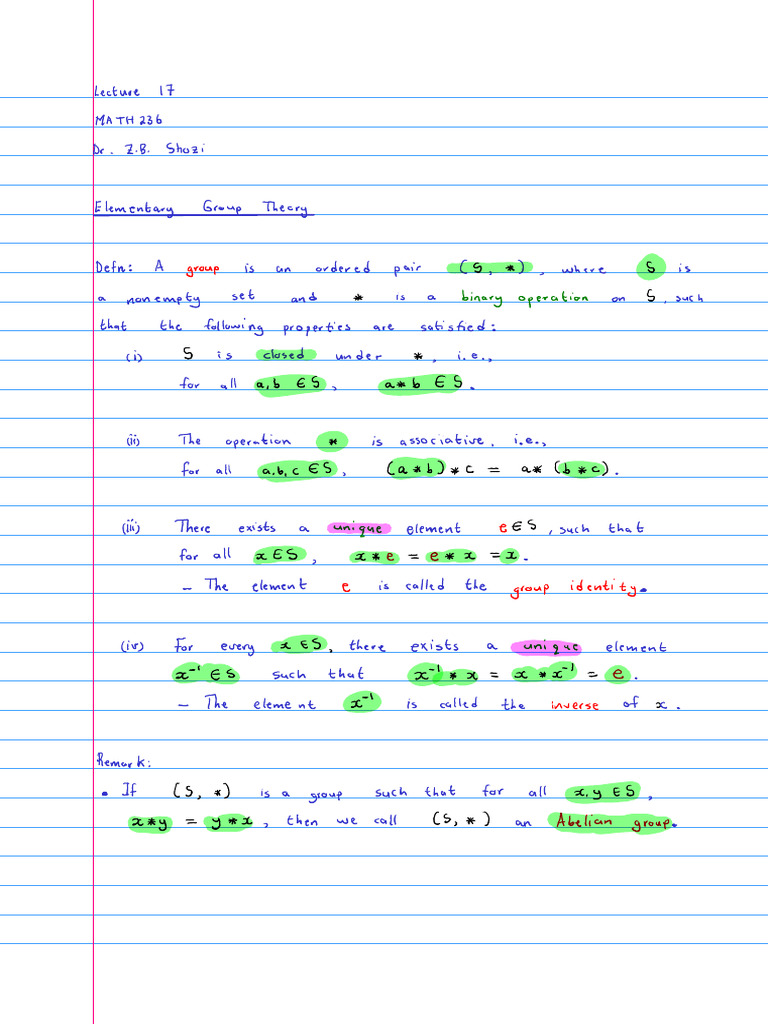 Lecture 17
MATH 236
Dr. Z.B. Shozi
Elementary Group Theory
Defn: A group is an ordered pair (S, *), where S is
a nonempty set and * is a binary operation on S, such
that the following properties are satisfied:
(i) S is closed under *, i.e.,
for all a,b ∈ S, a*b ∈ S.
(ii) The operation * is associative, i.e.,
for all a,b,c ∈ S, (a*b)*c = a*(b*c).
(iii) There exists a unique element e ∈ S, such that
for all x ∈ S, x*e = e*x = x.
– The element e is called the group identity.
(iv) For every x ∈ S, there exists a unique element
x⁻¹ ∈ S such that x⁻¹ * x = x * x⁻¹ = e.
– The element x⁻¹ is called the inverse of x.
Remark:
• If (S, *) is a group such that for all x,y ∈ S,
x*y = y*x, then we call (S, *) an Abelian group.